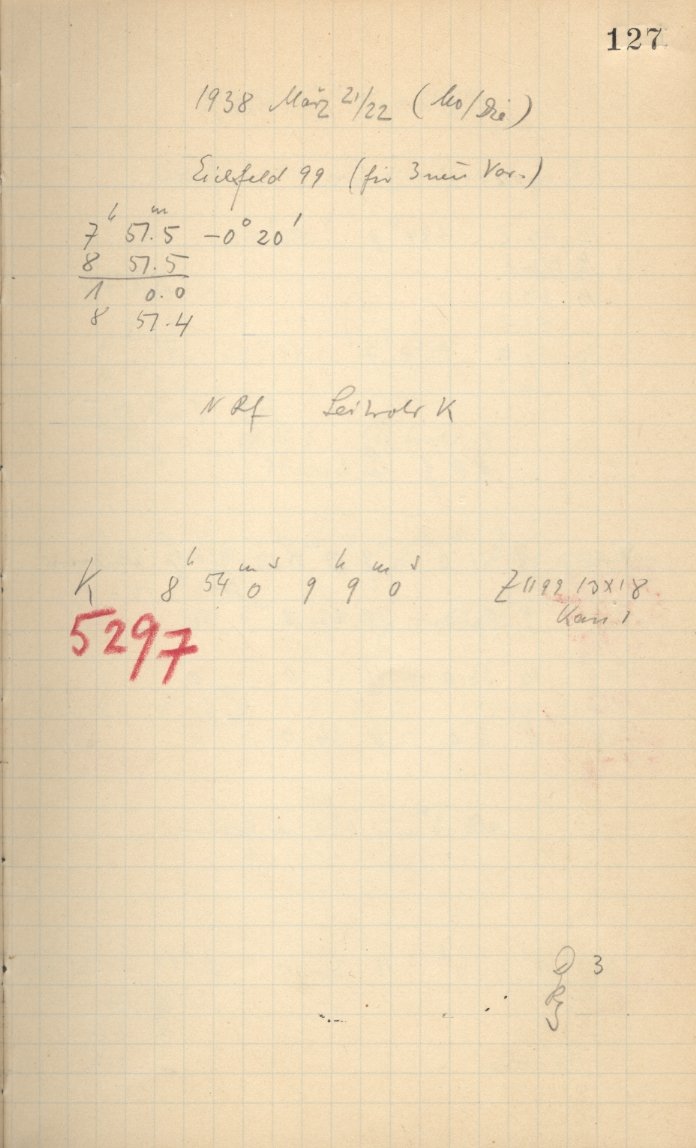 127
1938 März 21/22 (Mo/Die)
Eichfeld 99 (für 3 neue Var.)
7h 57m.5 -0° 20'
8 57.5
1 0.0
8 57.4
N Rf Leitrohr K
K 8h 54m 0s 9h 9m 0s Z 1199 13x18
5297
3